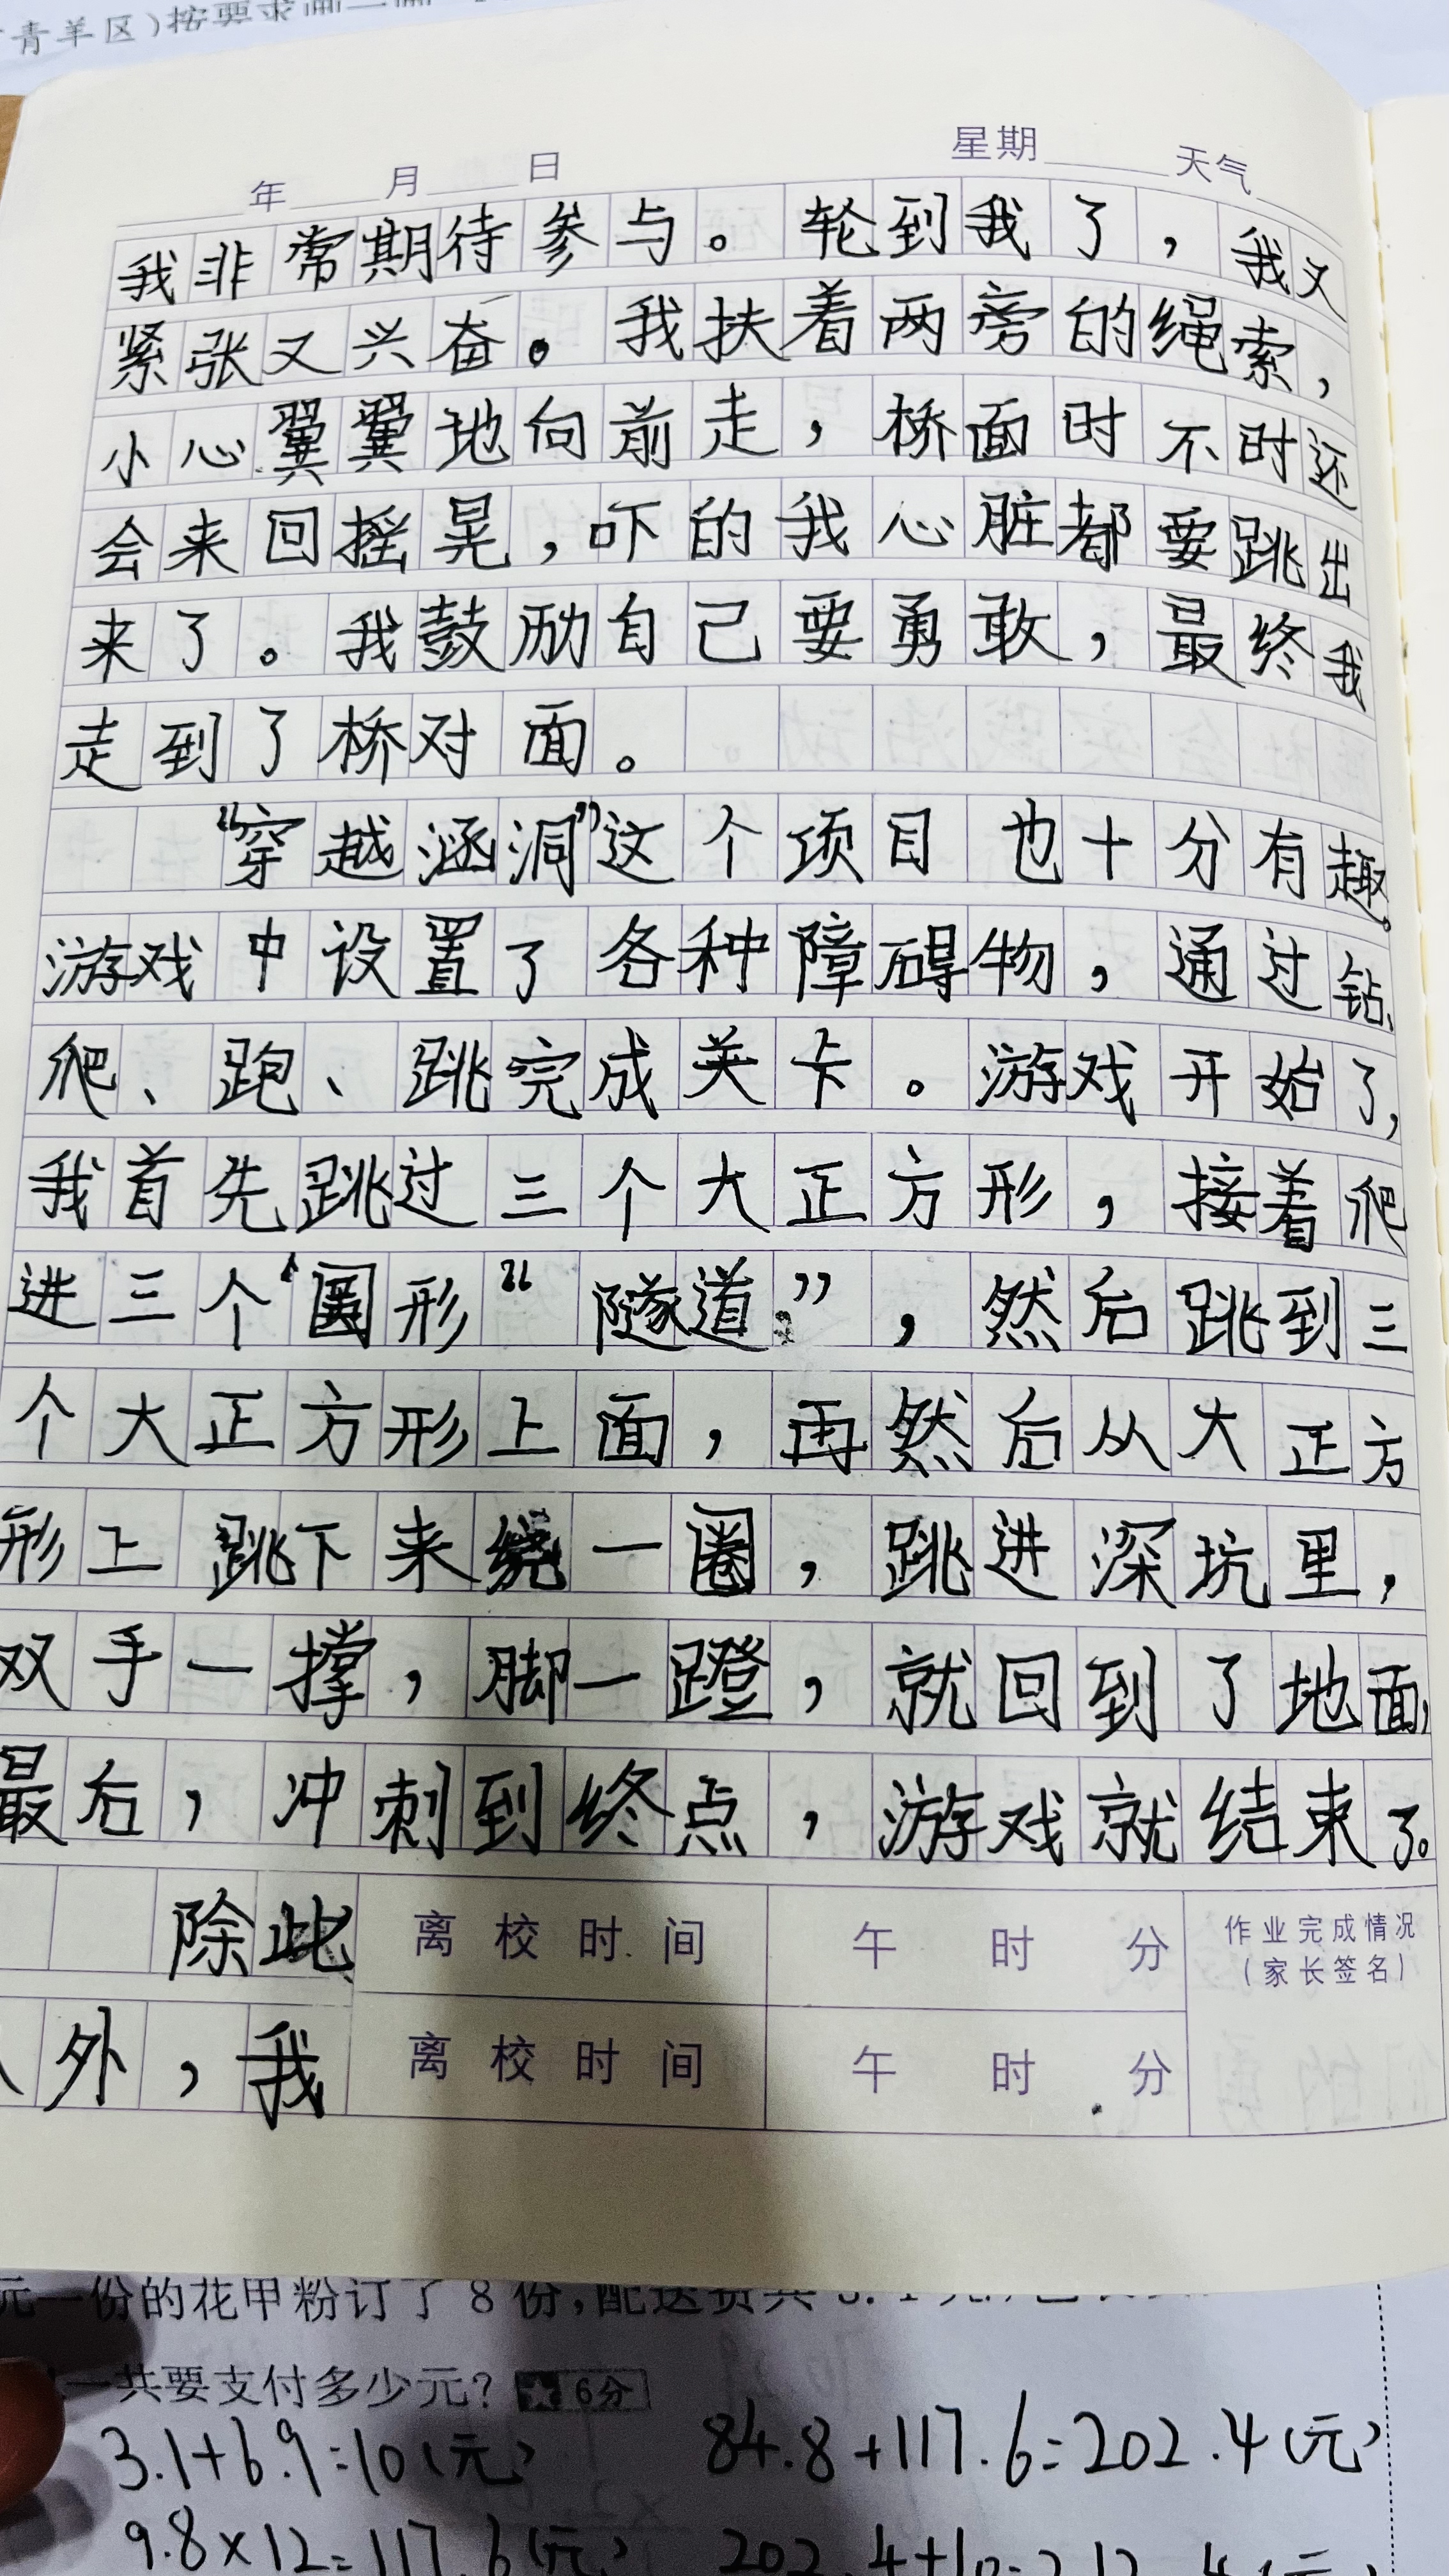 青羊区)按要求画一画
年 月 日 星期 天气
我非常期待参与。轮到我了，我又
紧张又兴奋。我扶着两旁的绳索，
小心翼翼地向前走，桥面时不时还
会来回摇晃，吓的我心脏都要跳出
来了。我鼓励自己要勇敢，最终我
走到了桥对面。
“穿越涵洞”这个项目也十分有趣。
游戏中设置了各种障碍物，通过钻、
爬、跑、跳完成关卡。游戏开始了，
我首先跳过三个大正方形，接着爬
进三个圆形“隧道”，然后跳到三
个大正方形上面，再然后从大正方
形上跳下来绕一圈，跳进深坑里，
双手一撑，脚一蹬，就回到了地面，
最后，冲刺到终点，游戏就结束了。
除此 离校时间 午 时 分 作业完成情况
(家长签名)
外，我 离校时间 午 时 分
元一份的花甲粉订了8份,配送费共
一共要支付多少元? 6分
3.1+6.9=10(元) 84.8+117.6=202.4(元)
9.8×12=117.6(元)